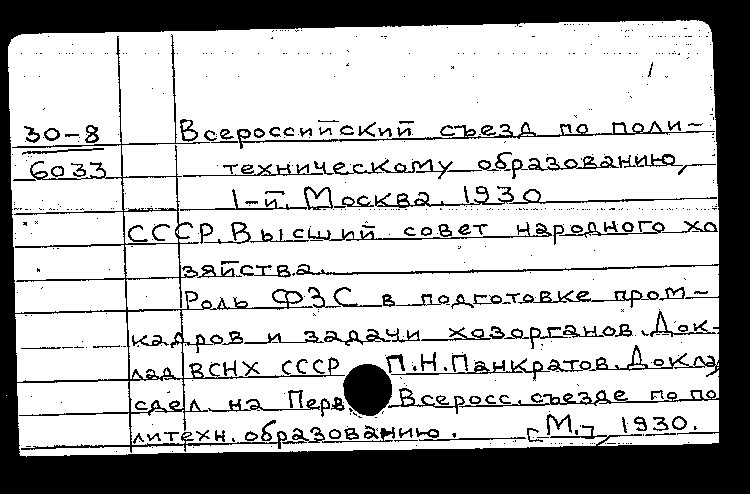 30-8
6033
Всероссийский съезд по поли-
техническому образованию,
1-й. Москва. 1930
СССР. Высший совет народного хо
зяйства.
Роль ФЗС в подготовке пром-
кадров и задачи хозорганов. Док-
лад ВСНХ СССР П.Н.Панкратов. Докла
сдел. на Перв Всеросс. съезде по по
литехн. образованию. [М.], 1930.